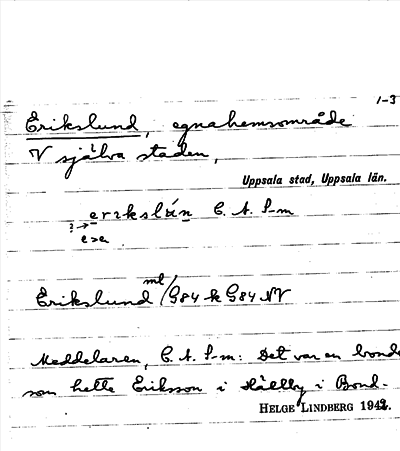 1-3
Erikslund, egnahemsområde
V själva staden,
Uppsala stad, Uppsala län.
C. A. S-m
Erikslund ml / G84 k G84 NV
Meddelaren, C. A. S-m: Det var en bonde
som hette Eriksson i Hällby i Bond-
HELGE LINDBERG 1942.